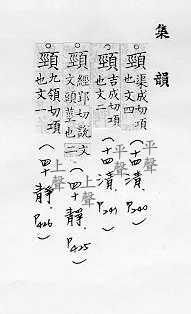 集韻
頸 渠成切項也文四 平聲 (十四清. P240)
頸 吉成切項也文二 平聲 (十四清. P241)
頸 經郢切說文頭莖也二 上聲 (四十靜. P425)
頸 九領切項也文一 上聲 (四十靜. P426)